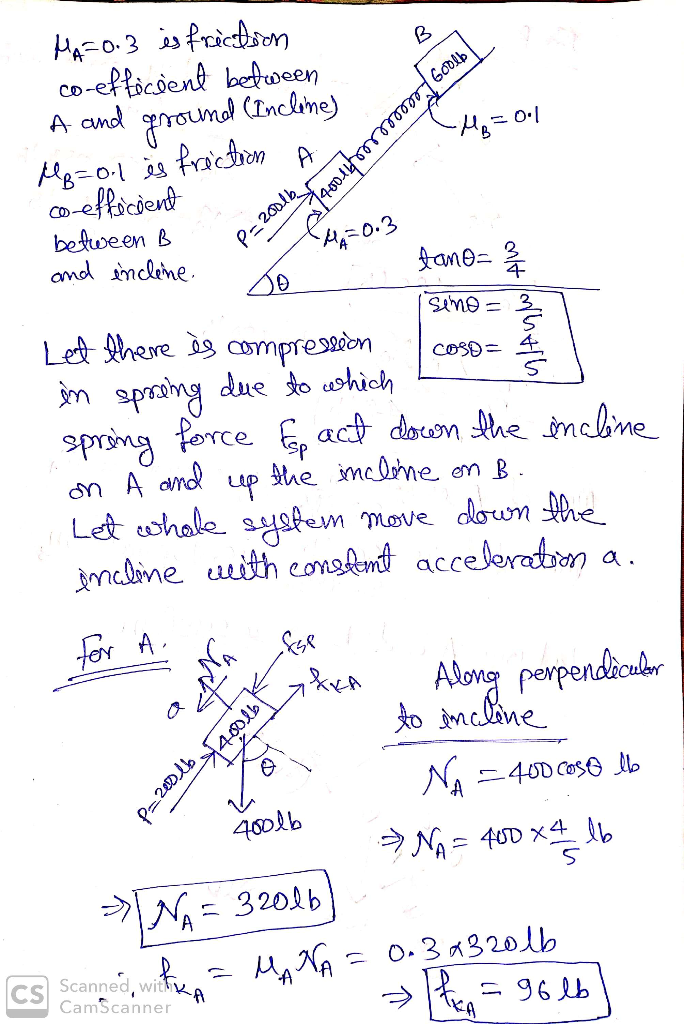 μA=0.3 is friction
co-efficient between
A and ground (Incline)
μB=0.1 is friction
co-efficient
between B
and incline.
B
600lb
μB=0.1
A
400lb
P=200lb
μA=0.3
θ
tanθ= 3/4
sinθ = 3/5
cosθ= 4/5
Let there is compression
in spring due to which
spring force Fsp act down the incline
on A and up the incline on B.
Let whole system move down the
incline with constant acceleration a.
For A.
NA
fsp
fKA
a
400lb
P=200lb
θ
400lb
Along perpendicular
to incline
NA = 400cosθ lb
⇒ NA = 400 x 4/5 lb
⇒ NA = 320lb
∴ fKA = μA NA = 0.3x320lb
⇒ fKA = 96 lb
CS Scanned with
CamScanner